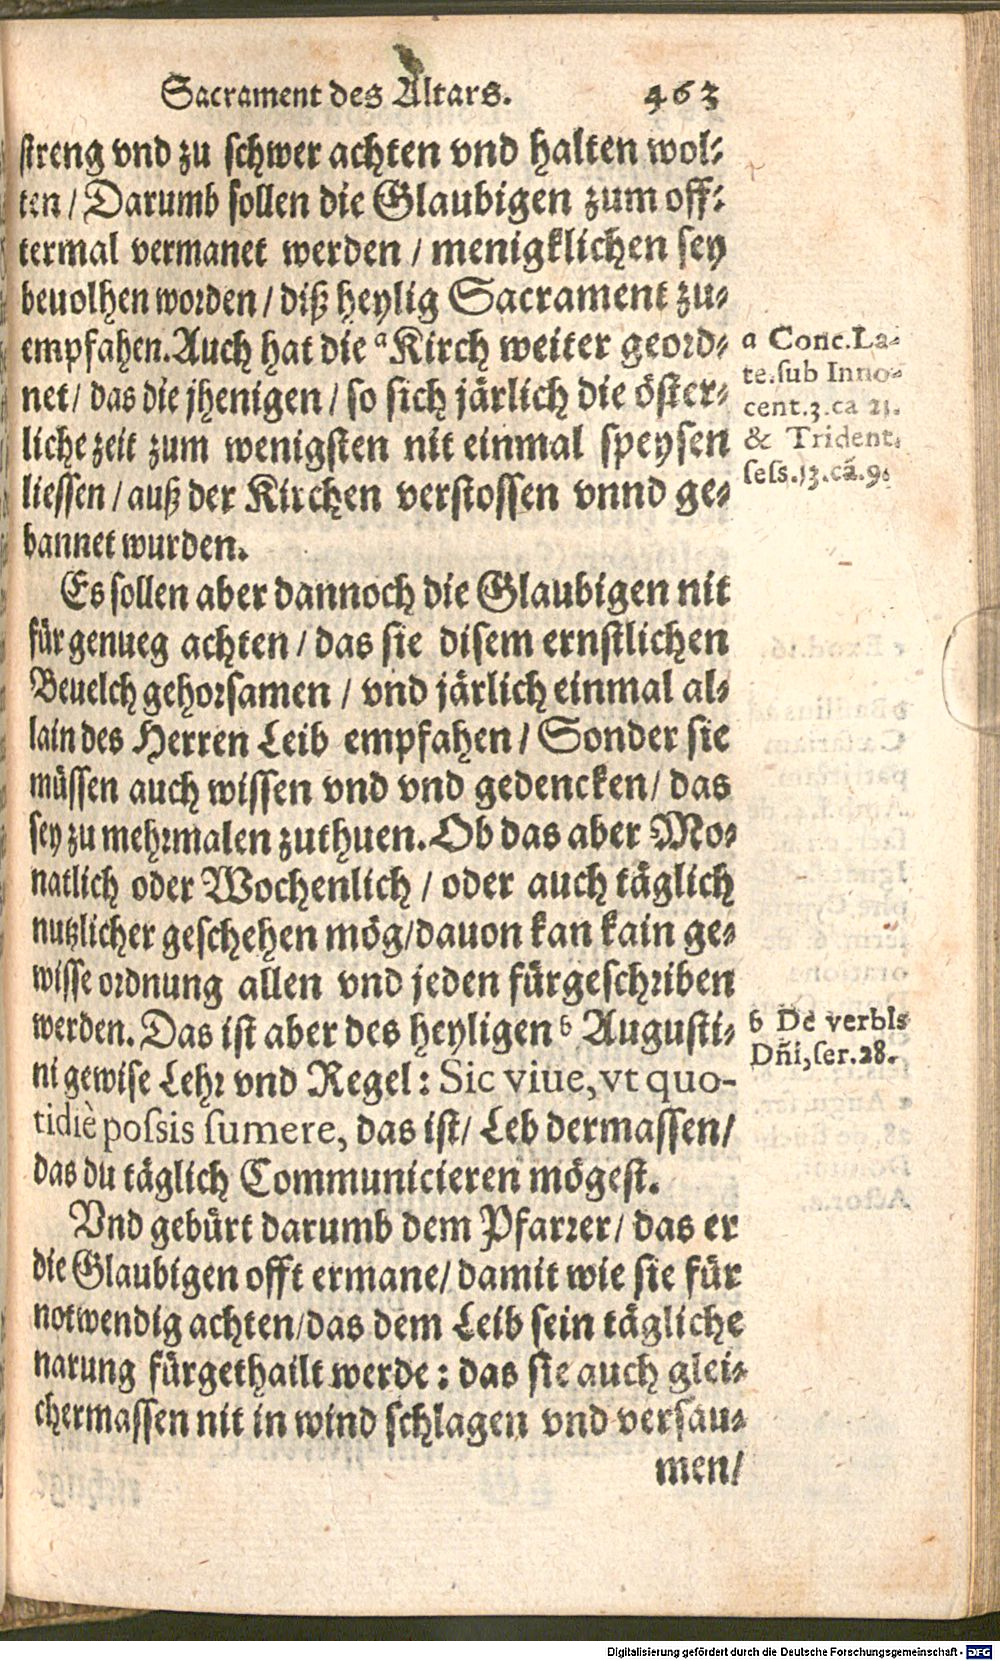 Sacrament des Altars. 463
streng vnd zu schwer achten vnd halten wol⸗
ten / Darumb sollen die Glaubigen zum off⸗
termal vermanet werden / menigklichen sey
beuolhen worden / diß heylig Sacrament zu⸗
empfahen. Auch hat die a Kirch weiter geord⸗
net / das die jhenigen / so sich järlich die öster⸗
liche zeit zum wenigsten nit einmal speysen
liessen / auß der Kirchen verstossen vnnd ge⸗
bannet wurden.
a Conc. La-
te. sub Inno-
cent. 3. ca 21.
& Trident.
sess. 13. cā. 9.
Es sollen aber dannoch die Glaubigen nit
für genueg achten / das sie disem ernstlichen
Beuelch gehorsamen / vnd järlich einmal al⸗
lain des Herren Leib empfahen / Sonder sie
müssen auch wissen vnd vnd gedencken / das
sey zu mehrmalen zuthuen. Ob das aber Mo⸗
natlich oder Wochenlich / oder auch täglich
nutzlicher geschehen mög / dauon kan kain ge⸗
wisse ordnung allen vnd jeden fürgeschriben
werden. Das ist aber des heyligen b Augusti⸗
ni gewise Lehr vnd Regel: Sic viue, vt quo-
tidiè possis sumere, das ist / Leb dermassen /
das du täglich Communicieren mögest.
b De verbis
Dñi, ser. 28.
Vnd gebürt darumb dem Pfarrer / das er
die Glaubigen offt ermane / damit wie sie für
notwendig achten / das dem Leib sein tägliche
narung fürgethailt werde: das sie auch glei⸗
chermassen nit in wind schlagen vnd versau⸗
men /
Digitalisierung gefördert durch die Deutsche Forschungsgemeinschaft - DFG